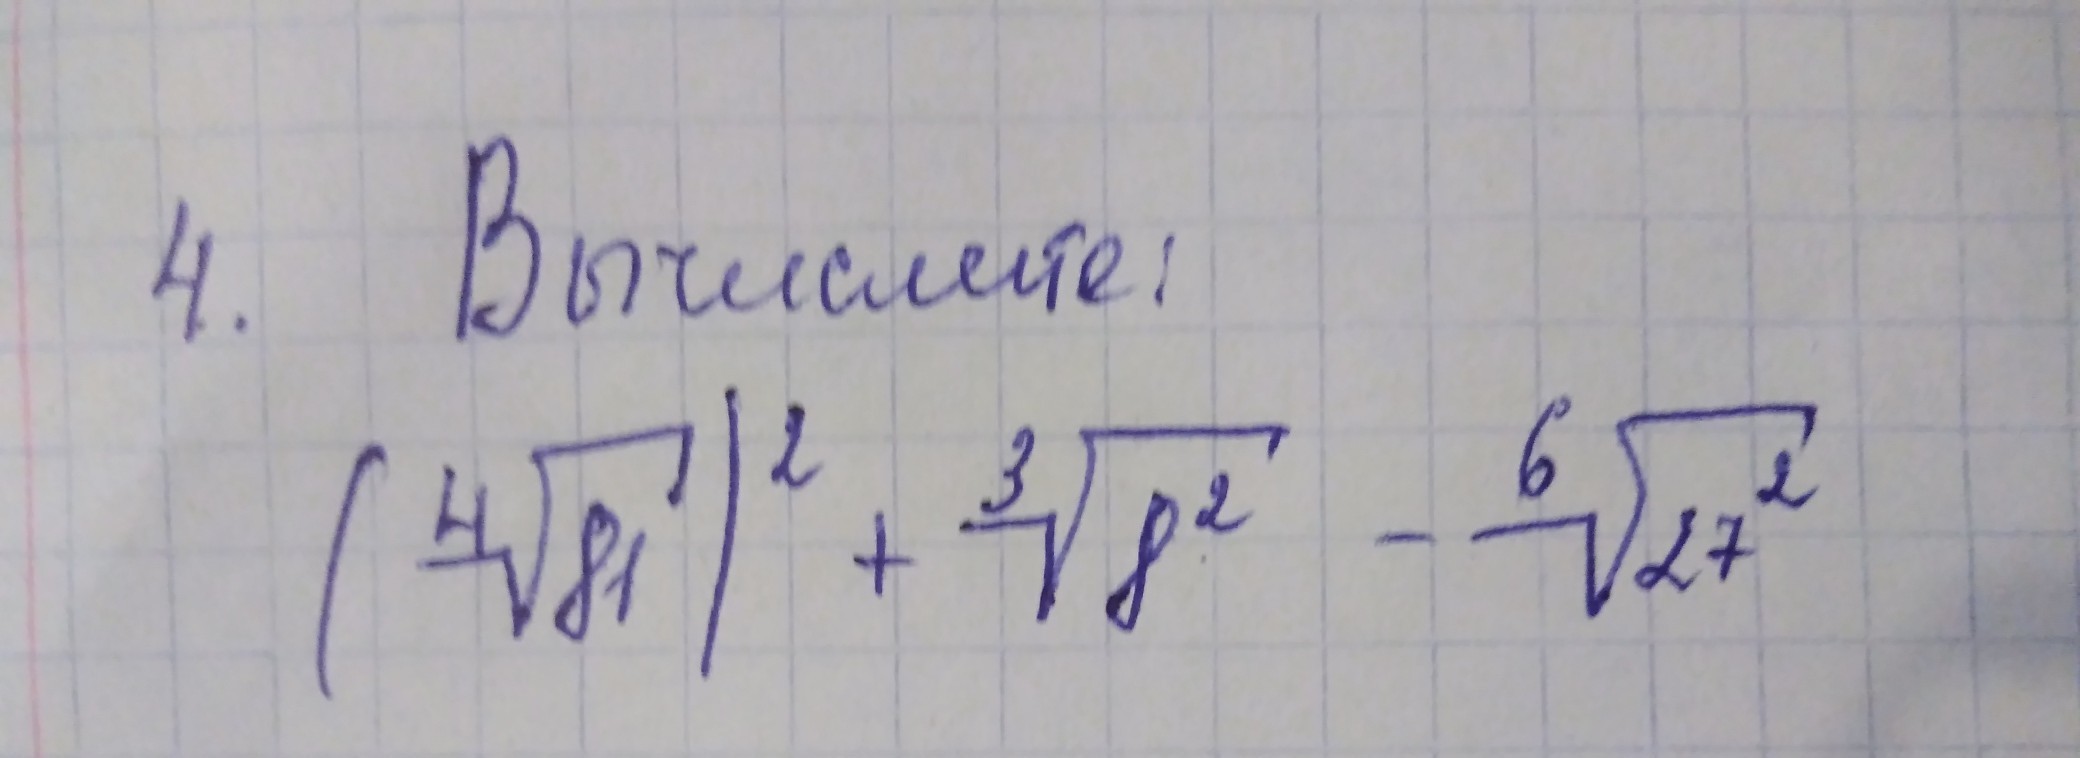 4. Вычислите:
(⁴√81)² + ³√8² - ⁶√27²